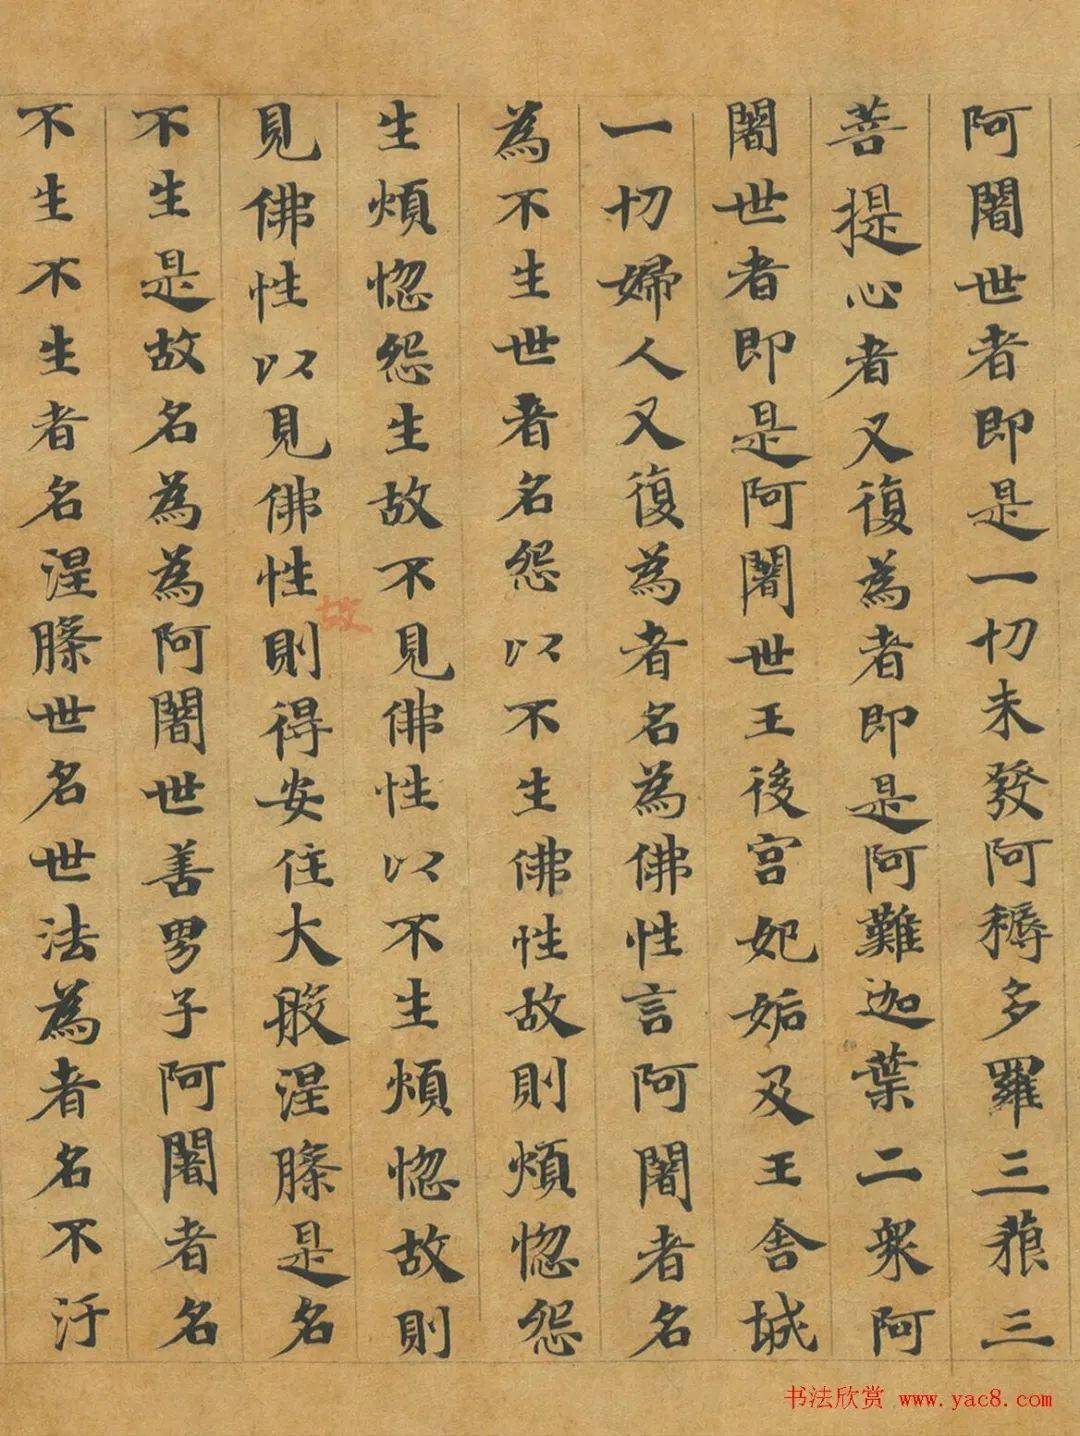 阿闍世者即是一切未發阿耨多羅三藐三
菩提心者又復為者即是阿難迦葉二眾阿
闍世者即是阿闍世王後宮妃姤及王舍城
一切婦人又復為者名為佛性言阿闍者名
為不生世者名怨以不生佛性故則煩惱怨
生煩惱怨生故不見佛性以不生煩惱故則
見佛性以見佛性故則得安住大般涅槃是名
不生是故名為為阿闍世善男子阿闍者名
不生不生者名涅槃世名世法為者名不汙
书法欣赏 www.yac8.com